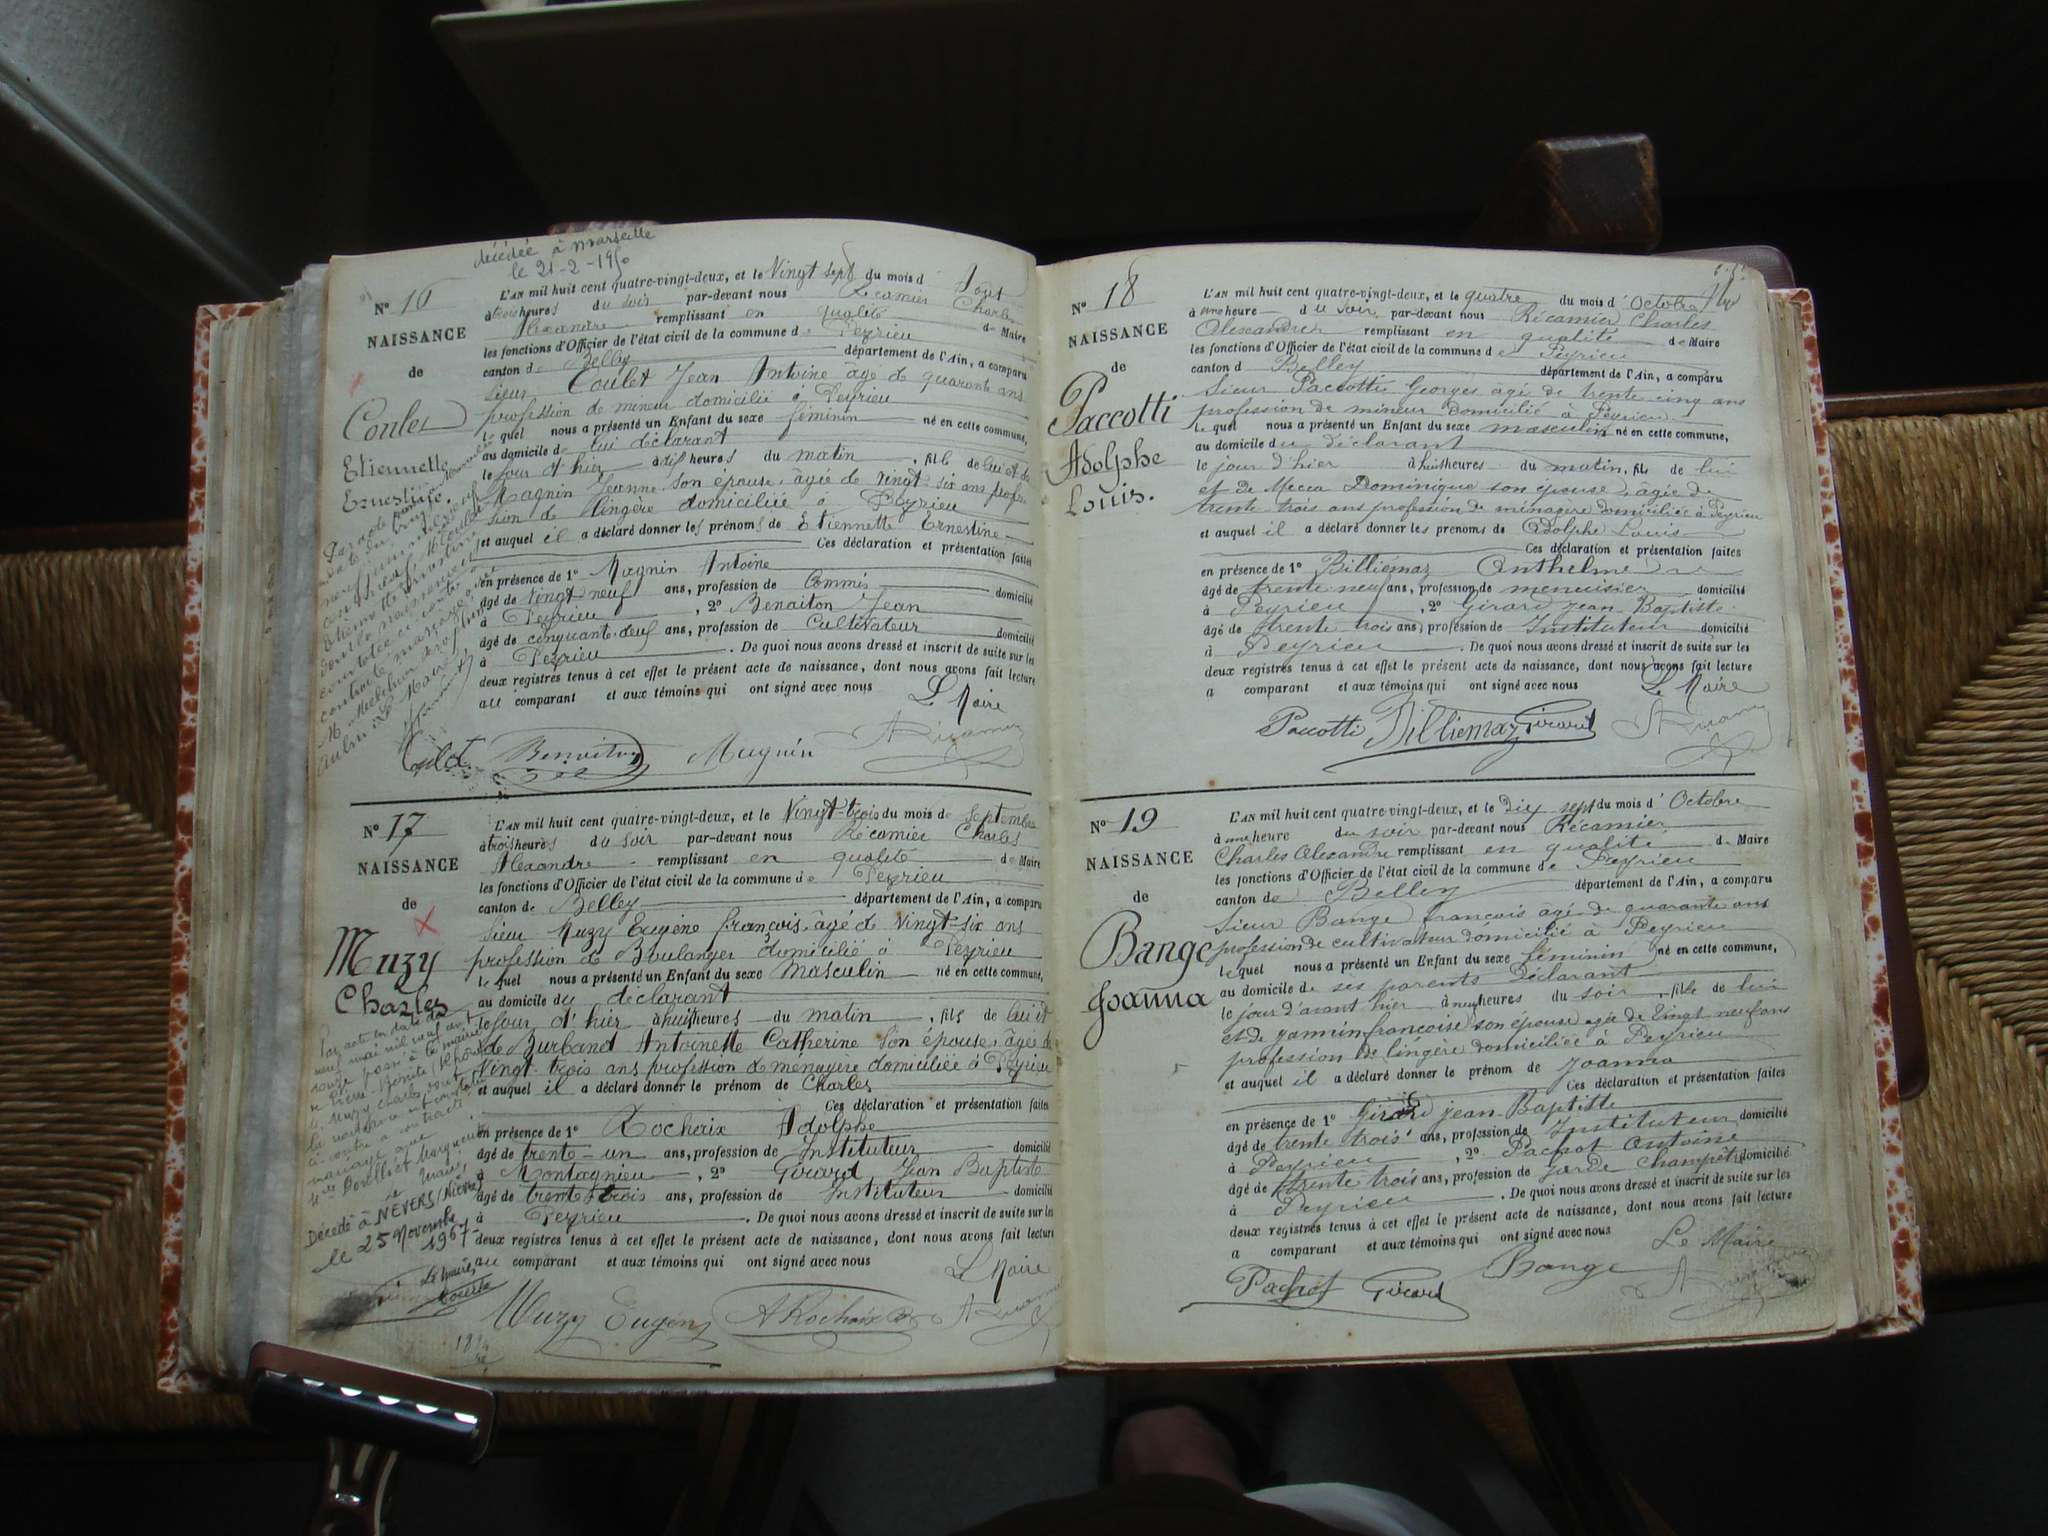 décédée à Marseille
le 21-2-1950
N° 16
NAISSANCE
de
Coulet
Etiennette
Ernestine.
L'AN mil huit cent quatre-vingt-deux, et le Vingt sept du mois d'Août
à trois heures du soir par-devant nous Récamier Charles
Alexandre remplissant en qualité de Maire
les fonctions d'Officier de l'état civil de la commune de Peyrieu
canton de Belley département de l'Ain, a comparu
sieur Coulet Jean Antoine âgé de quarante ans
profession de mineur domicilié à Peyrieu
lequel nous a présenté un Enfant du sexe féminin né en cette commune,
au domicile de lui déclarant
le jour d'hier à heures du matin, fille de lui et de
Magnin Jeanne son épouse, âgée de vingt-six ans profes
sion de lingère domiciliée à Peyrieu
et auquel il a déclaré donner les prénoms de Etiennette Ernestine
Ces déclaration et présentation faites
en présence de 1° Magnin Antoine
âgé de vingt neuf ans, profession de Commis domicilié
à Peyrieu, 2° Benaiton Jean
âgé de cinquante deux ans, profession de Cultivateur domicilié
à Peyrieu. De quoi nous avons dressé et inscrit de suite sur les
deux registres tenus à cet effet le présent acte de naissance, dont nous avons fait lecture
au comparant et aux témoins qui ont signé avec nous
Le Maire
Benaiton Magnin
N° 17
NAISSANCE
de
Muzy
Charles
Par acte en date du
mai mil neuf cent
à la mairie
Muzy Charles, dont
la naissance est constatée
ci-contre a contracté
mariage avec
Décédé à NEVERS (Nièvre)
le 25 Novembre
1967
Le Maire,
L'AN mil huit cent quatre-vingt-deux, et le Vingt-trois du mois de Septembre
à trois heures du soir par-devant nous Récamier Charles
Alexandre remplissant en qualité de Maire
les fonctions d'Officier de l'état civil de la commune de Peyrieu
canton de Belley département de l'Ain, a comparu
Sieur Muzy Eugène françois, âgé de Vingt-six ans
profession de Boulanger domicilié à Peyrieu
lequel nous a présenté un Enfant du sexe masculin né en cette commune,
au domicile du déclarant
le jour d'hier à huit heures du matin, fils de lui et
de Burband Antoinette Catherine son épouse, âgée de
Vingt-trois ans profession de ménagère domiciliée à Peyrieu
et auquel il a déclaré donner le prénom de Charles
Ces déclaration et présentation faites
en présence de 1° Rochaix Adolphe
âgé de trente-un ans, profession de Instituteur domicilié
à Montagnieu, 2° Girard Jean Baptiste
âgé de trente trois ans, profession de Instituteur domicilié
à Peyrieu. De quoi nous avons dressé et inscrit de suite sur les
deux registres tenus à cet effet le présent acte de naissance, dont nous avons fait lecture
au comparant et aux témoins qui ont signé avec nous
Le Maire
Muzy Eugène A Rochaix
N° 18
NAISSANCE
de
Paccotti
Adolphe
Louis.
L'AN mil huit cent quatre-vingt-deux, et le quatre du mois d'Octobre
à une heure du soir, par-devant nous Récamier Charles
Alexandre remplissant en qualité de Maire
les fonctions d'Officier de l'état civil de la commune de Peyrieu
canton de Belley département de l'Ain, a comparu
Sieur Paccotti Georges âgé de trente cinq ans
profession de mineur domicilié à Peyrieu
lequel nous a présenté un Enfant du sexe masculin né en cette commune,
au domicile du déclarant
le jour d'hier à huit heures du matin, fils de lui
et de Mecca Dominique son épouse, âgée de
trente trois ans profession de ménagère domiciliée à Peyrieu
et auquel il a déclaré donner les prénoms de Adolphe Louis
Ces déclaration et présentation faites
en présence de 1° Billiémaz Anthelme
âgé de trente neuf ans, profession de menuisier domicilié
à Peyrieu, 2° Girard Jean Baptiste
âgé de trente trois ans, profession de Instituteur domicilié
à Peyrieu. De quoi nous avons dressé et inscrit de suite sur les
deux registres tenus à cet effet le présent acte de naissance, dont nous avons fait lecture
a comparant et aux témoins qui ont signé avec nous
Le Maire
Paccotti Billiemaz Girard
N° 19
NAISSANCE
de
Bange
Joanna
L'AN mil huit cent quatre-vingt-deux, et le Dix sept du mois d'Octobre
à une heure du soir par-devant nous Récamier
Charles Alexandre remplissant en qualité de Maire
les fonctions d'Officier de l'état civil de la commune de Peyrieu
canton de Belley département de l'Ain, a comparu
Sieur Bange françois âgé de quarante ans
profession de cultivateur domicilié à Peyrieu
lequel nous a présenté un Enfant du sexe féminin né en cette commune,
au domicile de ses parents Déclarant
le jour d'avant hier à neuf heures du soir, fille de lui
et de Jamin françoise son épouse agée de Vingt neuf ans
profession de lingère domiciliée à Peyrieu
et auquel il a déclaré donner le prénom de Joanna
Ces déclaration et présentation faites
en présence de 1° Girard Jean-Baptiste
âgé de trente trois ans, profession de Instituteur domicilié
à Peyrieu, 2° Pachot Antoine
âgé de trente trois ans, profession de garde champêtre domicilié
à Peyrieu. De quoi nous avons dressé et inscrit de suite sur les
deux registres tenus à cet effet le présent acte de naissance, dont nous avons fait lecture
a comparant et aux témoins qui ont signé avec nous
Le Maire
Pachot Girard Bange